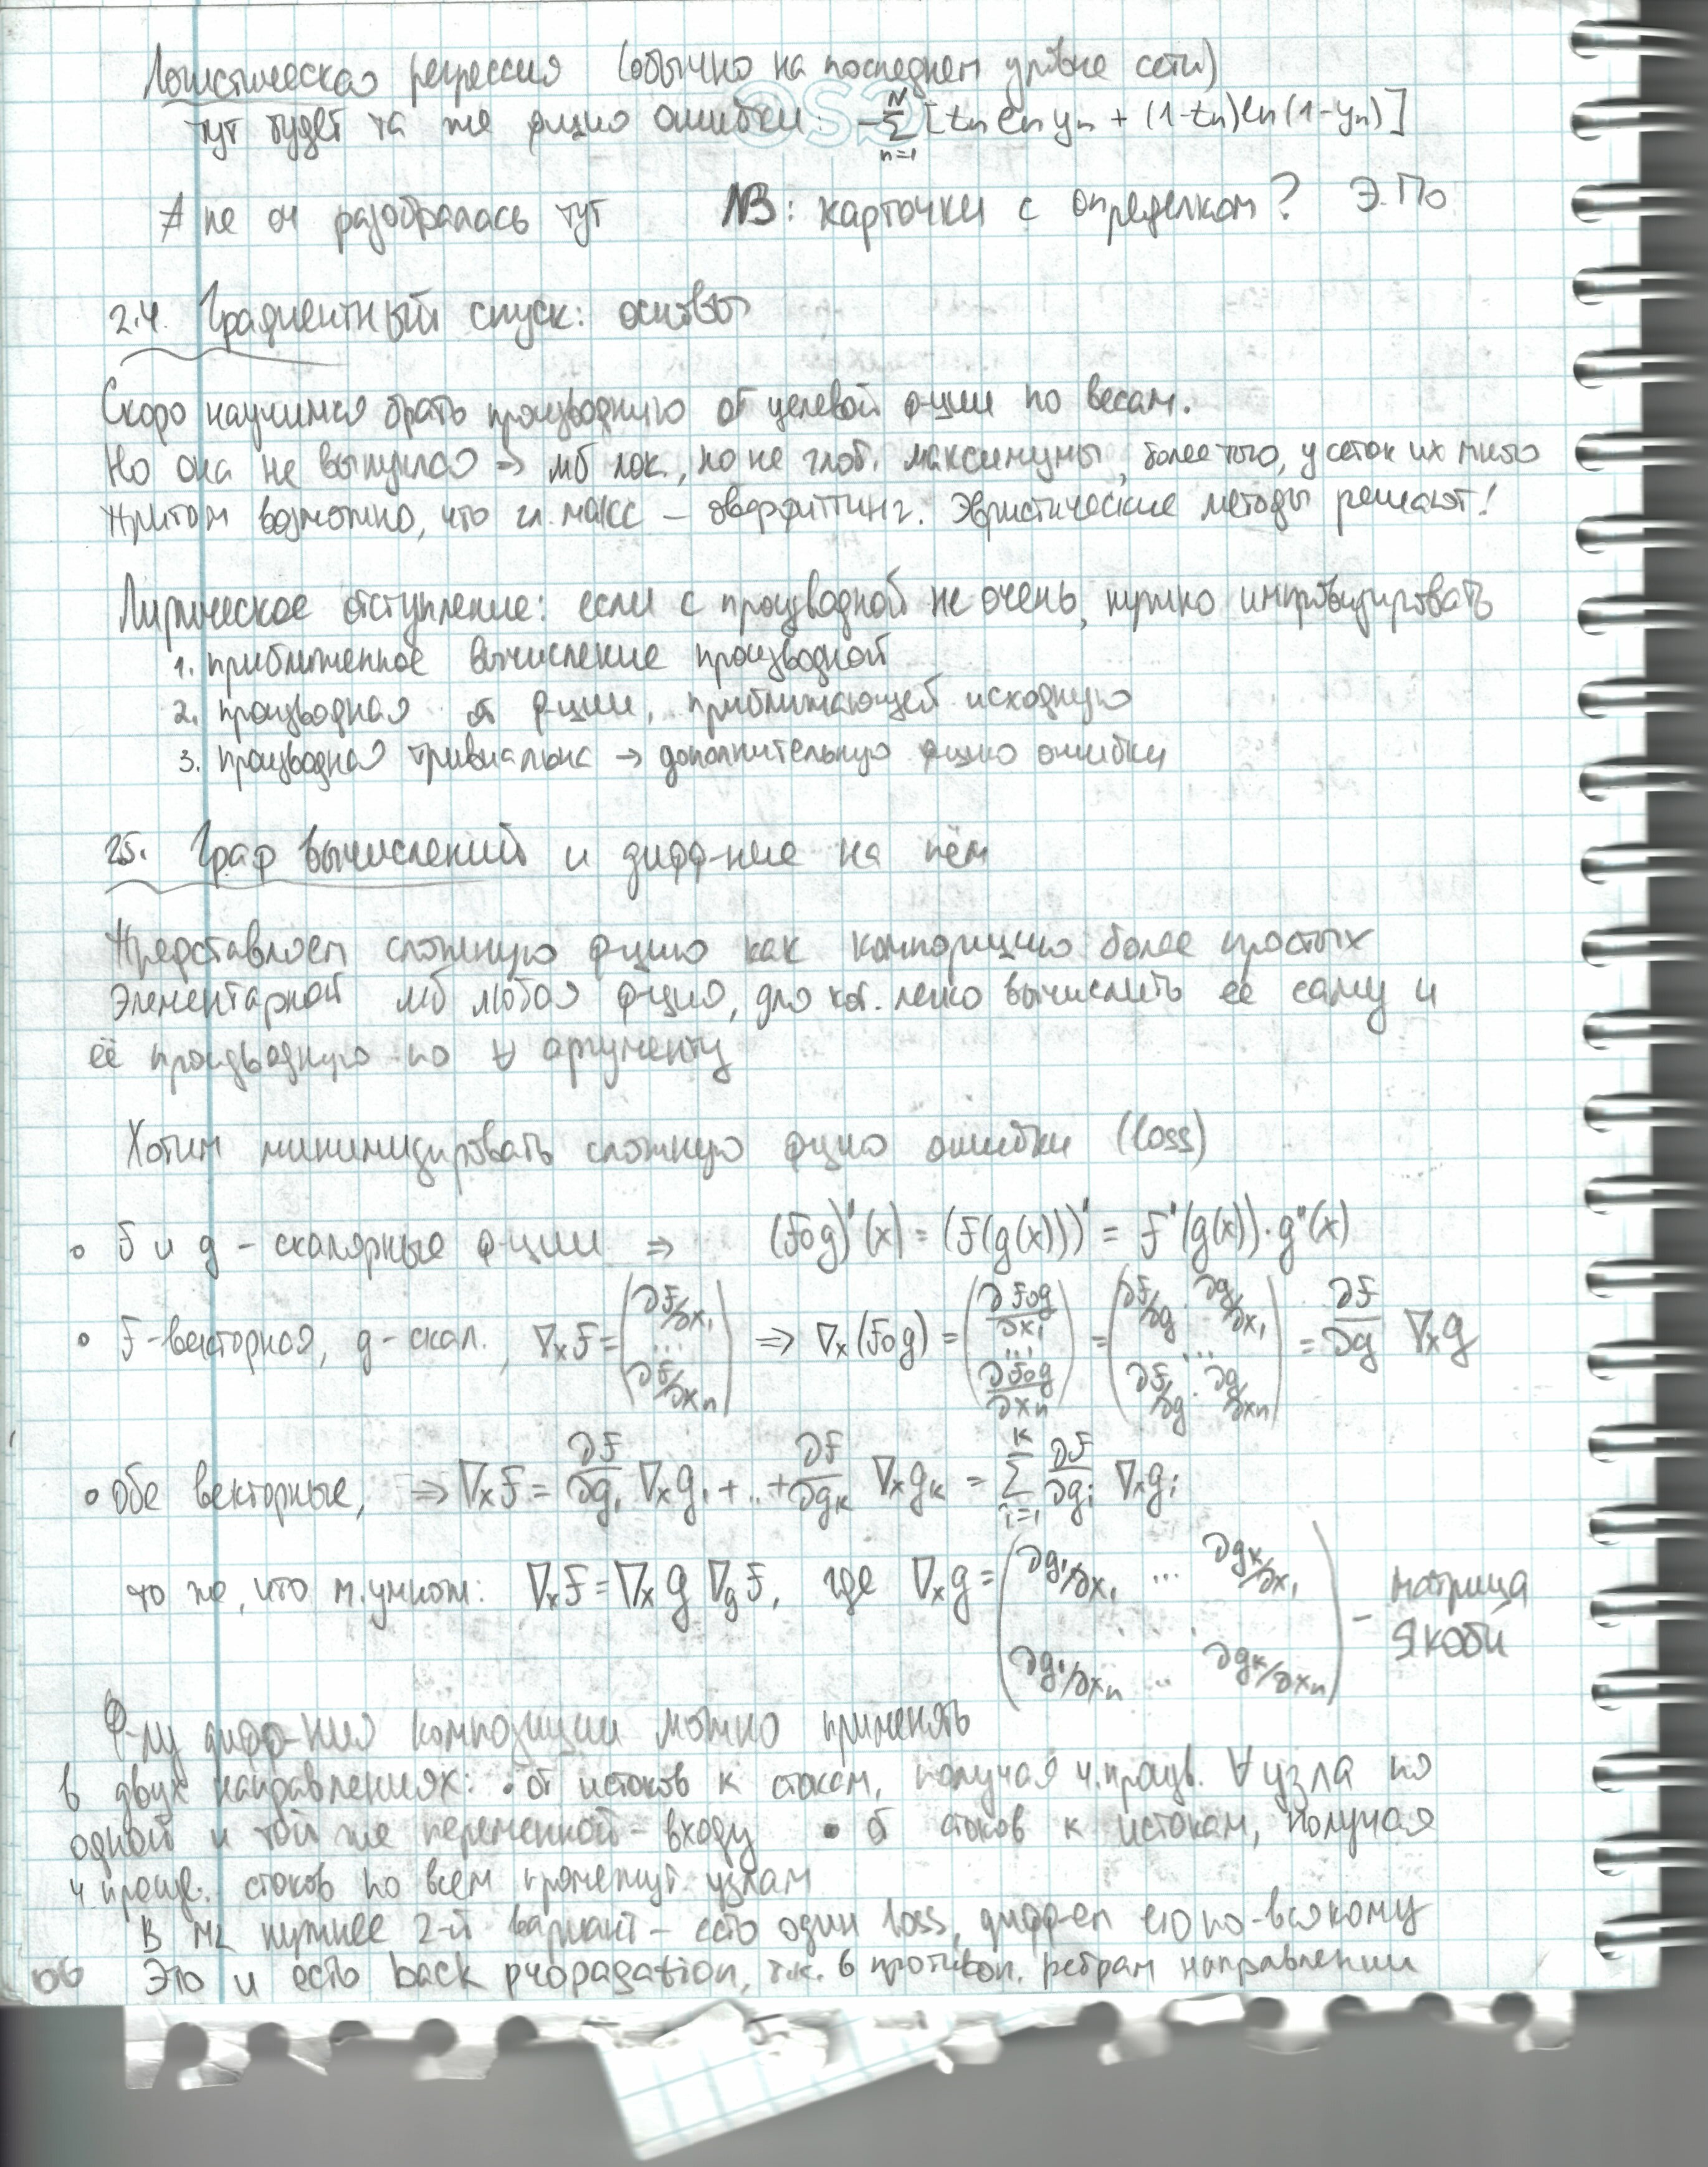 Логистическая регрессия (обычно на последнем уровне сети)
тут будет та же ф-цию ошибки: -∑ₙ₌₁ᴺ [tₙ ln yₙ + (1-tₙ) ln (1-yₙ)]
Я не оч разобралась тут NB: карточки с определком?
2.4. Градиентный спуск: основы
Скоро научимся брать производную от целевой ф-ции по весам.
Но она не выпуклая => мб лок., но не глоб. максимумы, более того, у сеток их много
Притом возможно, что гл. макс – оверфиттинг. Эвристические методы решают!
Лирическое отступление: если с производной не очень, нужно импровизировать
1. приближенное вычисление производной
2. производная от ф-ции, приближающей исходную
3. производная тривиальна → дополнительную фцию ошибки
25. Граф вычислений и дифф-ние на нём
Представляем сложную фцию как композицию более простых
Элементарной мб любая ф-ция, для кот. легко вычислить её саму и
её производную по ∀ аргументу
Хотим минимизировать сложную фцию ошибки (loss)
• F и g – скалярные ф-ции => (F∘g)'(x) = (F(g(x)))' = F'(g(x))·g''(x)
• F-векторная, g-скал., ∇ₓF = (∂F/∂x₁ ... ∂F/∂xₙ) => ∇ₓ(F∘g) = (∂F∘g/∂x₁ ... ∂F∘g/∂xₙ) = (∂F/∂g · ∂g/∂x₁ ... ∂F/∂g · ∂g/∂xₙ) = ∂F/∂g ∇ₓg
• Обе векторные, => ∇ₓF = ∂F/∂g₁ ∇ₓg₁ + .. + ∂F/∂gₖ ∇ₓgₖ = ∑ᵢ₌₁ᴷ ∂F/∂gᵢ ∇ₓgᵢ
то же, что м. умнож: ∇ₓF = ∇ₓg ∇gF, где ∇ₓg = (∂g₁/∂x₁ ... ∂gₖ/∂x₁ ... ∂g₁/∂xₙ .. ∂gₖ/∂xₙ) – матрица Якоби
Ф-лу дифф-ния композиции можно применять
в двух направлениях: • от истоков к стокам, получая ч. произв. ∀ узла по
одной и той же переменной – входу • от стоков к истокам, получая
ч. произв. стоков по всем промежут. узлам
В ML нужнее 2-й вариант – есть один loss, дифф-ем его по-всякому
Это и есть back propagation, т.к. в противоп. ребрам направлении